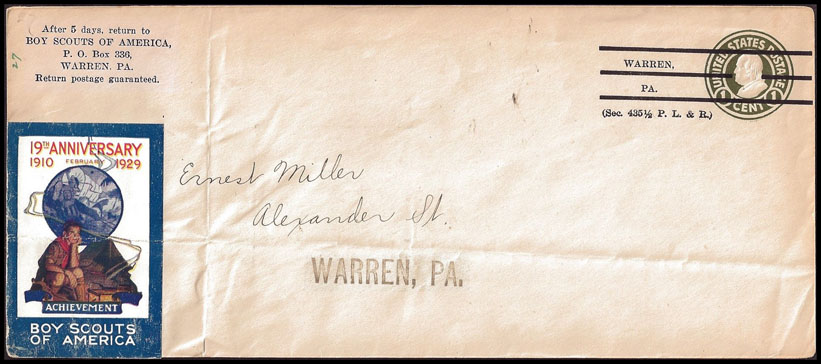 After 5 days, return to
BOY SCOUTS OF AMERICA,
P. O. Box 336,
WARREN, PA.
Return postage guaranteed.
27
19TH ANNIVERSARY
1910 FEBRUARY 1929
ACHIEVEMENT
BOY SCOUTS
OF AMERICA
WARREN,
PA.
(Sec. 435½ P. L. & R.)
UNITED STATES POSTAGE
1 CENT 1
Ernest Miller
Alexander St.
WARREN, PA.